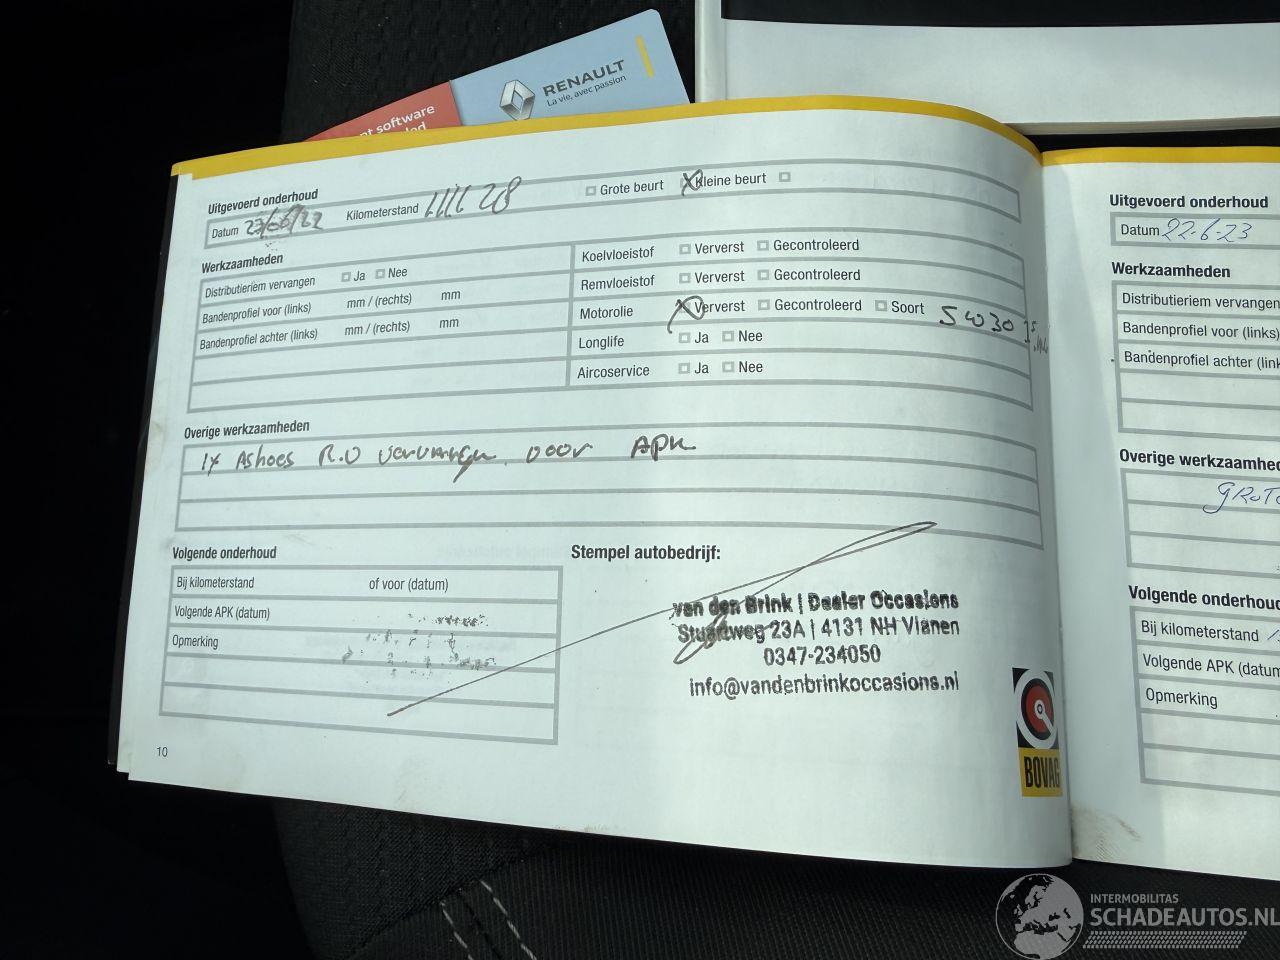 RENAULT
La vie, avec passion
nt software
Uitgevoerd onderhoud
Datum 23/06/22 Kilometerstand Grote beurt Kleine beurt
Werkzaamheden
Distributieriem vervangen Ja Nee
Bandenprofiel voor (links) mm / (rechts) mm
Bandenprofiel achter (links) mm / (rechts) mm
Koelvloeistof Ververst Gecontroleerd
Remvloeistof Ververst Gecontroleerd
Motorolie Ververst Gecontroleerd Soort 5W30
Longlife Ja Nee
Aircoservice Ja Nee
Overige werkzaamheden
1x Ashoes R.V vervangen voor APK
Volgende onderhoud
Bij kilometerstand of voor (datum)
Volgende APK (datum)
Opmerking
Stempel autobedrijf:
van den Brink | Dealer Occasions
Stuartweg 23A | 4131 NH Vianen
0347-234050
info@vandenbrinkoccasions.nl
BOVAG
10
Uitgevoerd onderhoud
Datum 22-6-23
Werkzaamheden
Distributieriem vervangen
Bandenprofiel voor (links)
Bandenprofiel achter (link
Overige werkzaamhe
GROT
Volgende onderhoud
Bij kilometerstand
Volgende APK (datum
Opmerking
INTERMOBILITAS
SCHADEAUTOS.NL